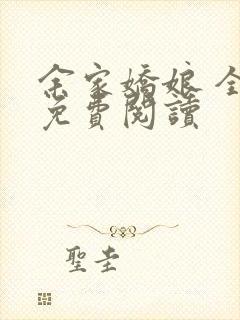 余家嬌娘 全
免費閱讀
聖圭